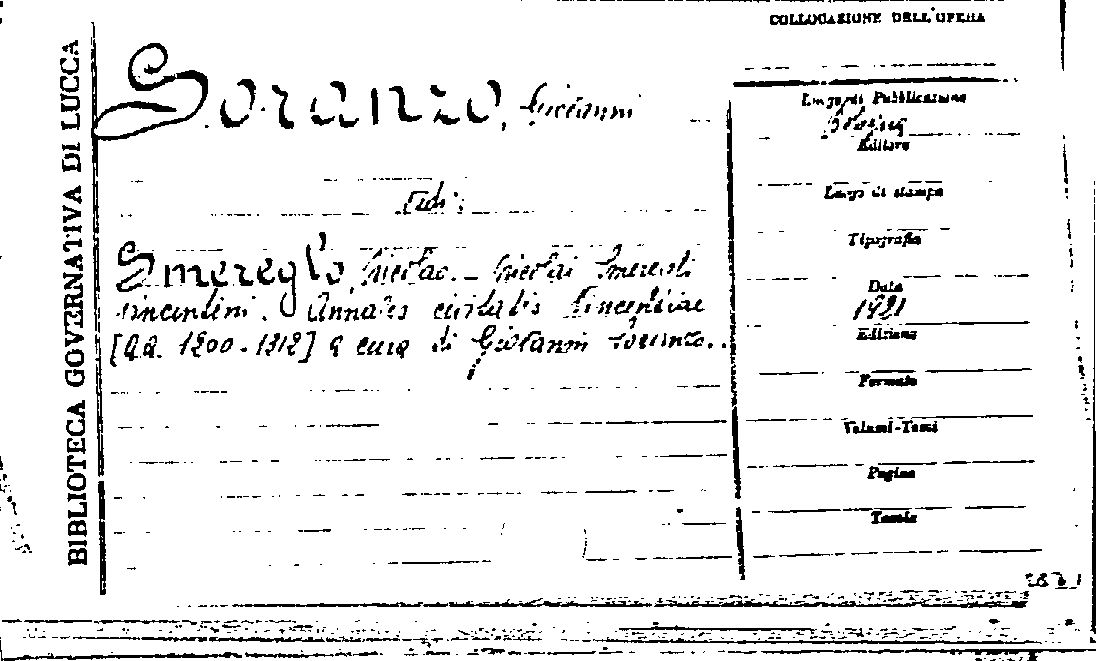 BIBLIOTECA GOVERNATIVA DI LUCCA
COLLOCAZIONE DELL'OPERA
Soranzo, Giovanni
Vedi:
Smereglo, Nicolao. - Nicolai Smeregli
vincentini. Annales civitatis Vincentiae
[aa. 1200-1312] a cura di Giovanni Soranzo.
Luogo di Pubblicazione
Bologna
Editore
Luogo di stampa
Tipografia
Data
1921
Edizione
Formato
Volumi-Tomi
Pagine
Tavole